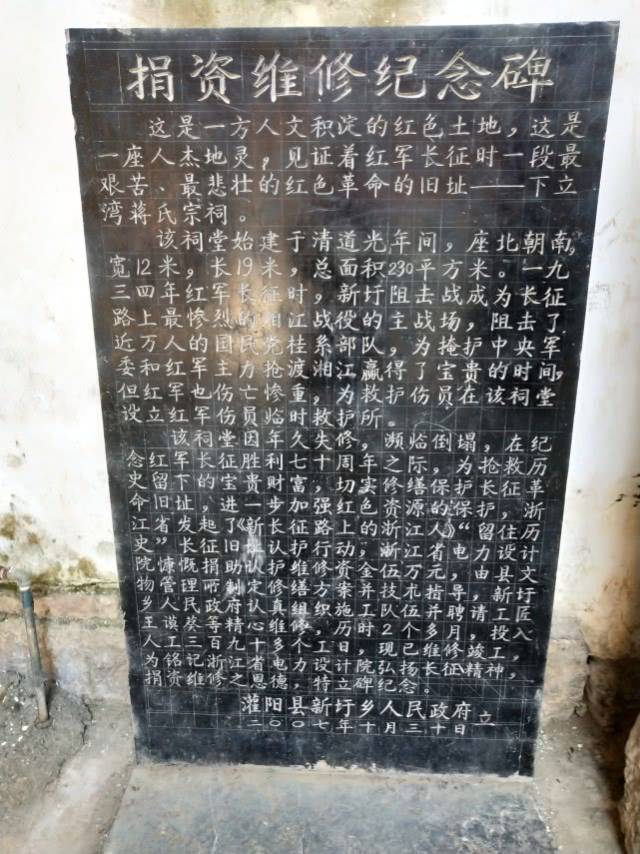 捐资维修纪念碑
这是一方人文积淀的红色土地，这是
一座人杰地灵，见证着红军长征时一段最
艰苦、最悲壮的红色革命的旧址——下立
湾蒋氏宗祠。
该祠堂始建于清道光年间，座北朝南，
宽12米，长19米，总面积230平方米。一九
三四年红军长征时，新圩阻击战成为长征
路上最惨烈的湘江战役的主战场，阻击了
近万人的国民党桂系部队，为掩护中央军
委和红军主力抢渡湘江赢得了宝贵的时间，
但红军也伤亡惨重，为救护伤员在该祠堂
设立红军伤员临时救护所。
该祠堂因年久失修，濒临倒塌，在纪
念红军长征胜利七十周年之际，为抢救历
史留下的宝贵财富，切实修缮保护长征革
命旧址，进一步加强红色资源的保护，浙
江省发起了《新长征路上的浙江人》“留住历
史”长征旧址认护行动，浙江省电力设计
院慷慨捐助认护维修资金伍万元，由县文
物管理所制定修缮方案并技术指导，新圩
乡人民政府认真组织施工队伍并聘请工匠
王谟葵等精心维修，历时2个多月，投入
人工三九十个工日，现已维修竣工，
为铭记浙江省电力设计院弘扬长征精神，
捐资维修之恩德，特立碑纪念。
灌阳县新圩乡人民政府 立
二〇〇七年十月三十日